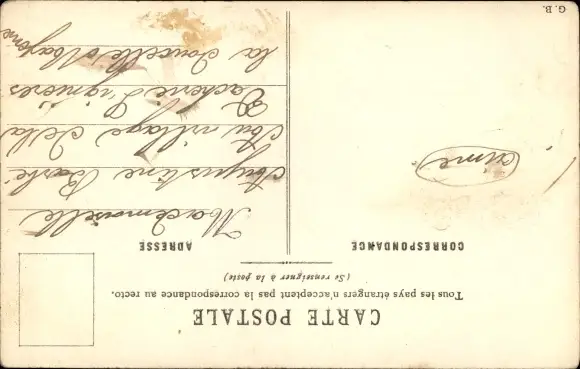 CARTE POSTALE
Tous les pays étrangers n'acceptent pas la correspondance au recto.
(Se renseigner à la poste)
CORRESPONDANCE
ADRESSE
Mademoiselle
Augustine Barbé
Au village de la
Vacherie d'igniores
la Doucelle Mayenne
aime
G. B.